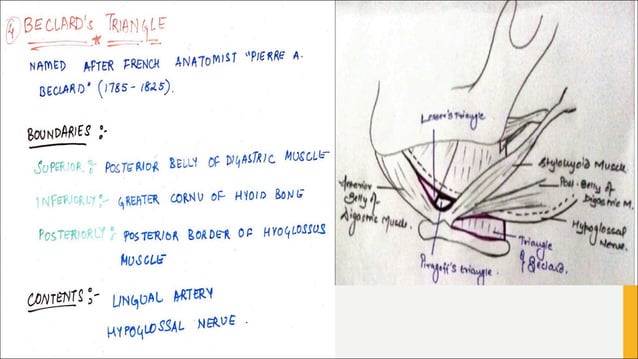 ④ BECLARD'S TRIANGLE
NAMED AFTER FRENCH ANATOMIST "PIERRE A.
BECLARD" (1785 - 1825).
BOUNDARIES :-
SUPERIOR :- POSTERIOR BELLY OF DIGASTRIC MUSCLE
INFERIORLY :- GREATER CORNU OF HYOID BONE
POSTERIORLY :- POSTERIOR BORDER OF HYOGLOSSUS
MUSCLE
CONTENTS :- LINGUAL ARTERY
HYPOGLOSSAL NERVE .
Lesser's Triangle
Stylohyoid Muscle
Post. Belly of
Digastric M.
Anterior
Belly of
Digastric Muscle.
Hypoglossal
Nerve.
Triangle
of Beclard.
Pirogoff's triangle .